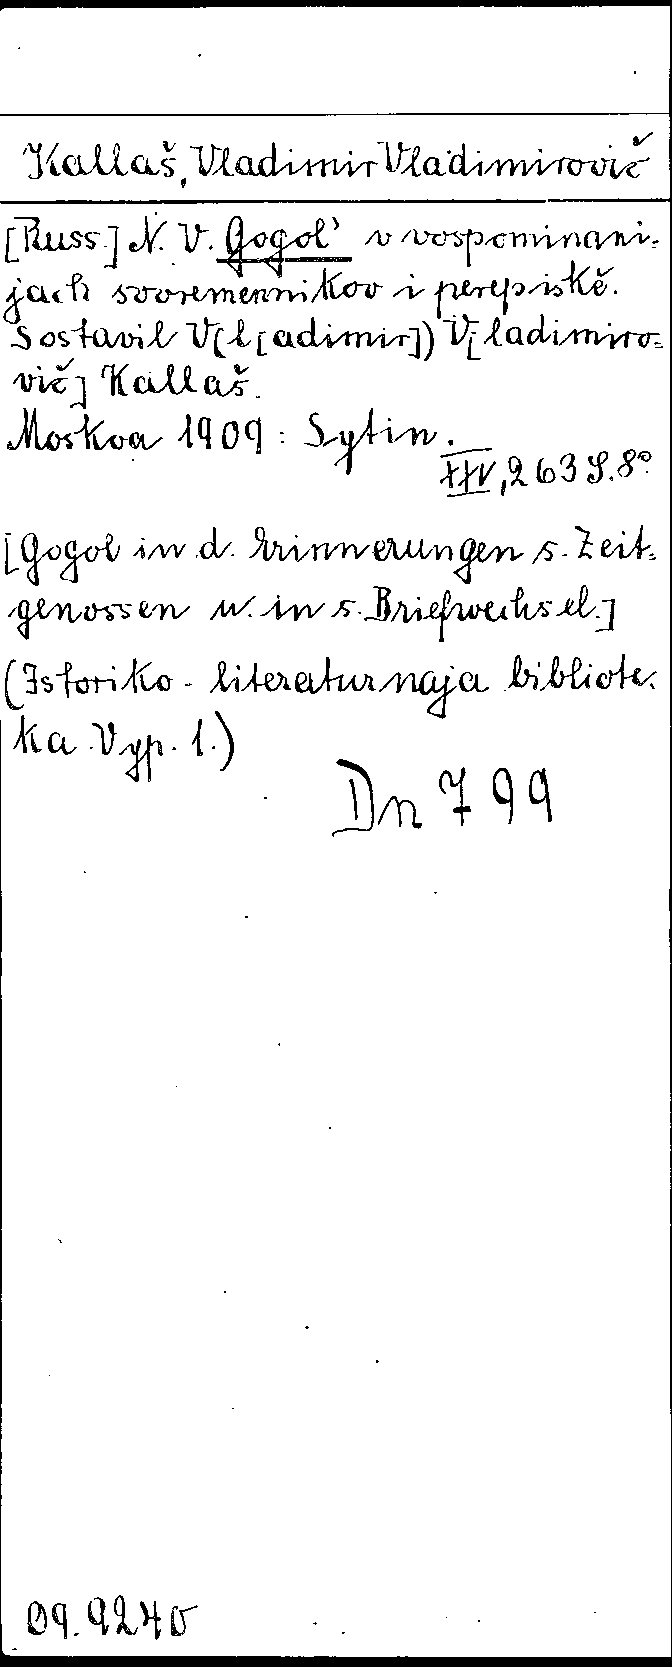 Kallaš, Vladimir Vladimirovič
[Russ.] N. V. Gogol' v vospominani-
jach sovremennikov i perepiskě.
Sostavil V[l[adimir]) V[ladimiro-
vič] Kallaš.
Moskva 1909: Sytin.
XXIV, 263 S. 8°
[Gogol in d. Erinnerungen s. Zeit-
genossen u. in s. Briefwechsel.]
(Istoriko-literaturnaja bibliote-
ka. Vyp. 1.)
Dn 799
09.9240